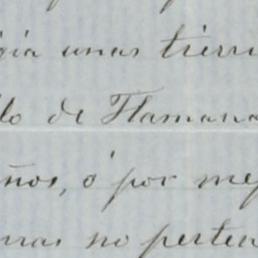 gia unas tierr
lo de Flamana
ños, ó por mej
rras no perten